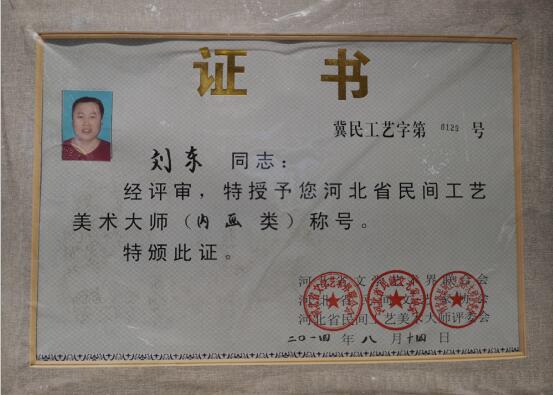 证 书
冀民工艺字第 0129 号
刘东 同志：
经评审，特授予您河北省民间工艺
美术大师（内画 类）称号。
特颁此证。
河北省文学艺术界联合会
河北省民间文艺家协会
河北省民间工艺美术大师评委会
二〇一四 年 八 月 十四 日